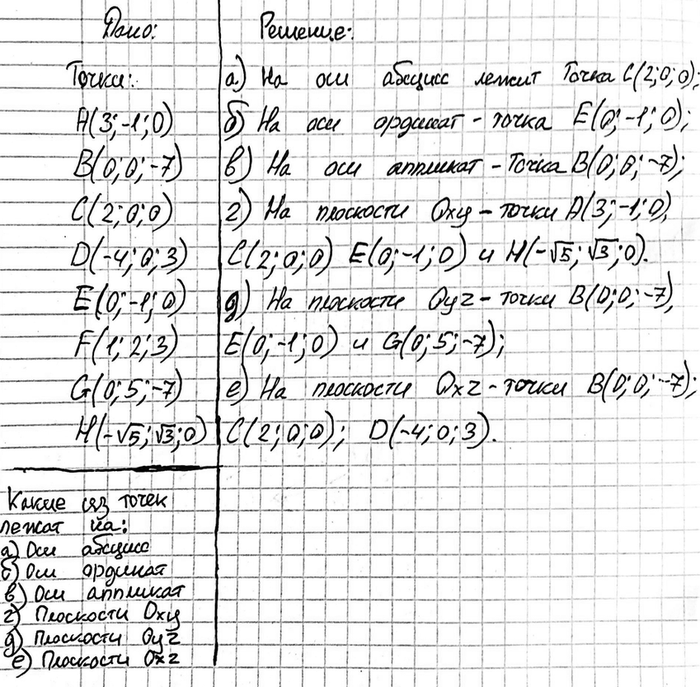 Дано:
Точки:
A(3;-1;0)
B(0;0;-7)
C(2;0;0)
D(-4;0;3)
E(0;-1;0)
F(1;2;3)
G(0;5;-7)
H(-√5;√3;0)
Какие из точек
лежат на:
а) Оси абсцисс
б) Оси ординат
в) Оси аппликат
г) Плоскости Oxy
д) Плоскости Oyz
е) Плоскости Oxz
Решение:
а) На оси абсцисс лежит Точка C(2;0;0);
б) На оси ординат - точка E(0;-1;0);
в) На оси аппликат - Точка B(0;0;-7);
г) На плоскости Oxy - точки A(3;-1;0),
C(2;0;0) E(0;-1;0) и H(-√5;√3;0).
д) На плоскости Oyz - точки B(0;0;-7),
E(0;-1;0) и G(0;5;-7);
е) На плоскости Oxz - точки B(0;0;-7);
C(2;0;0); D(-4;0;3).